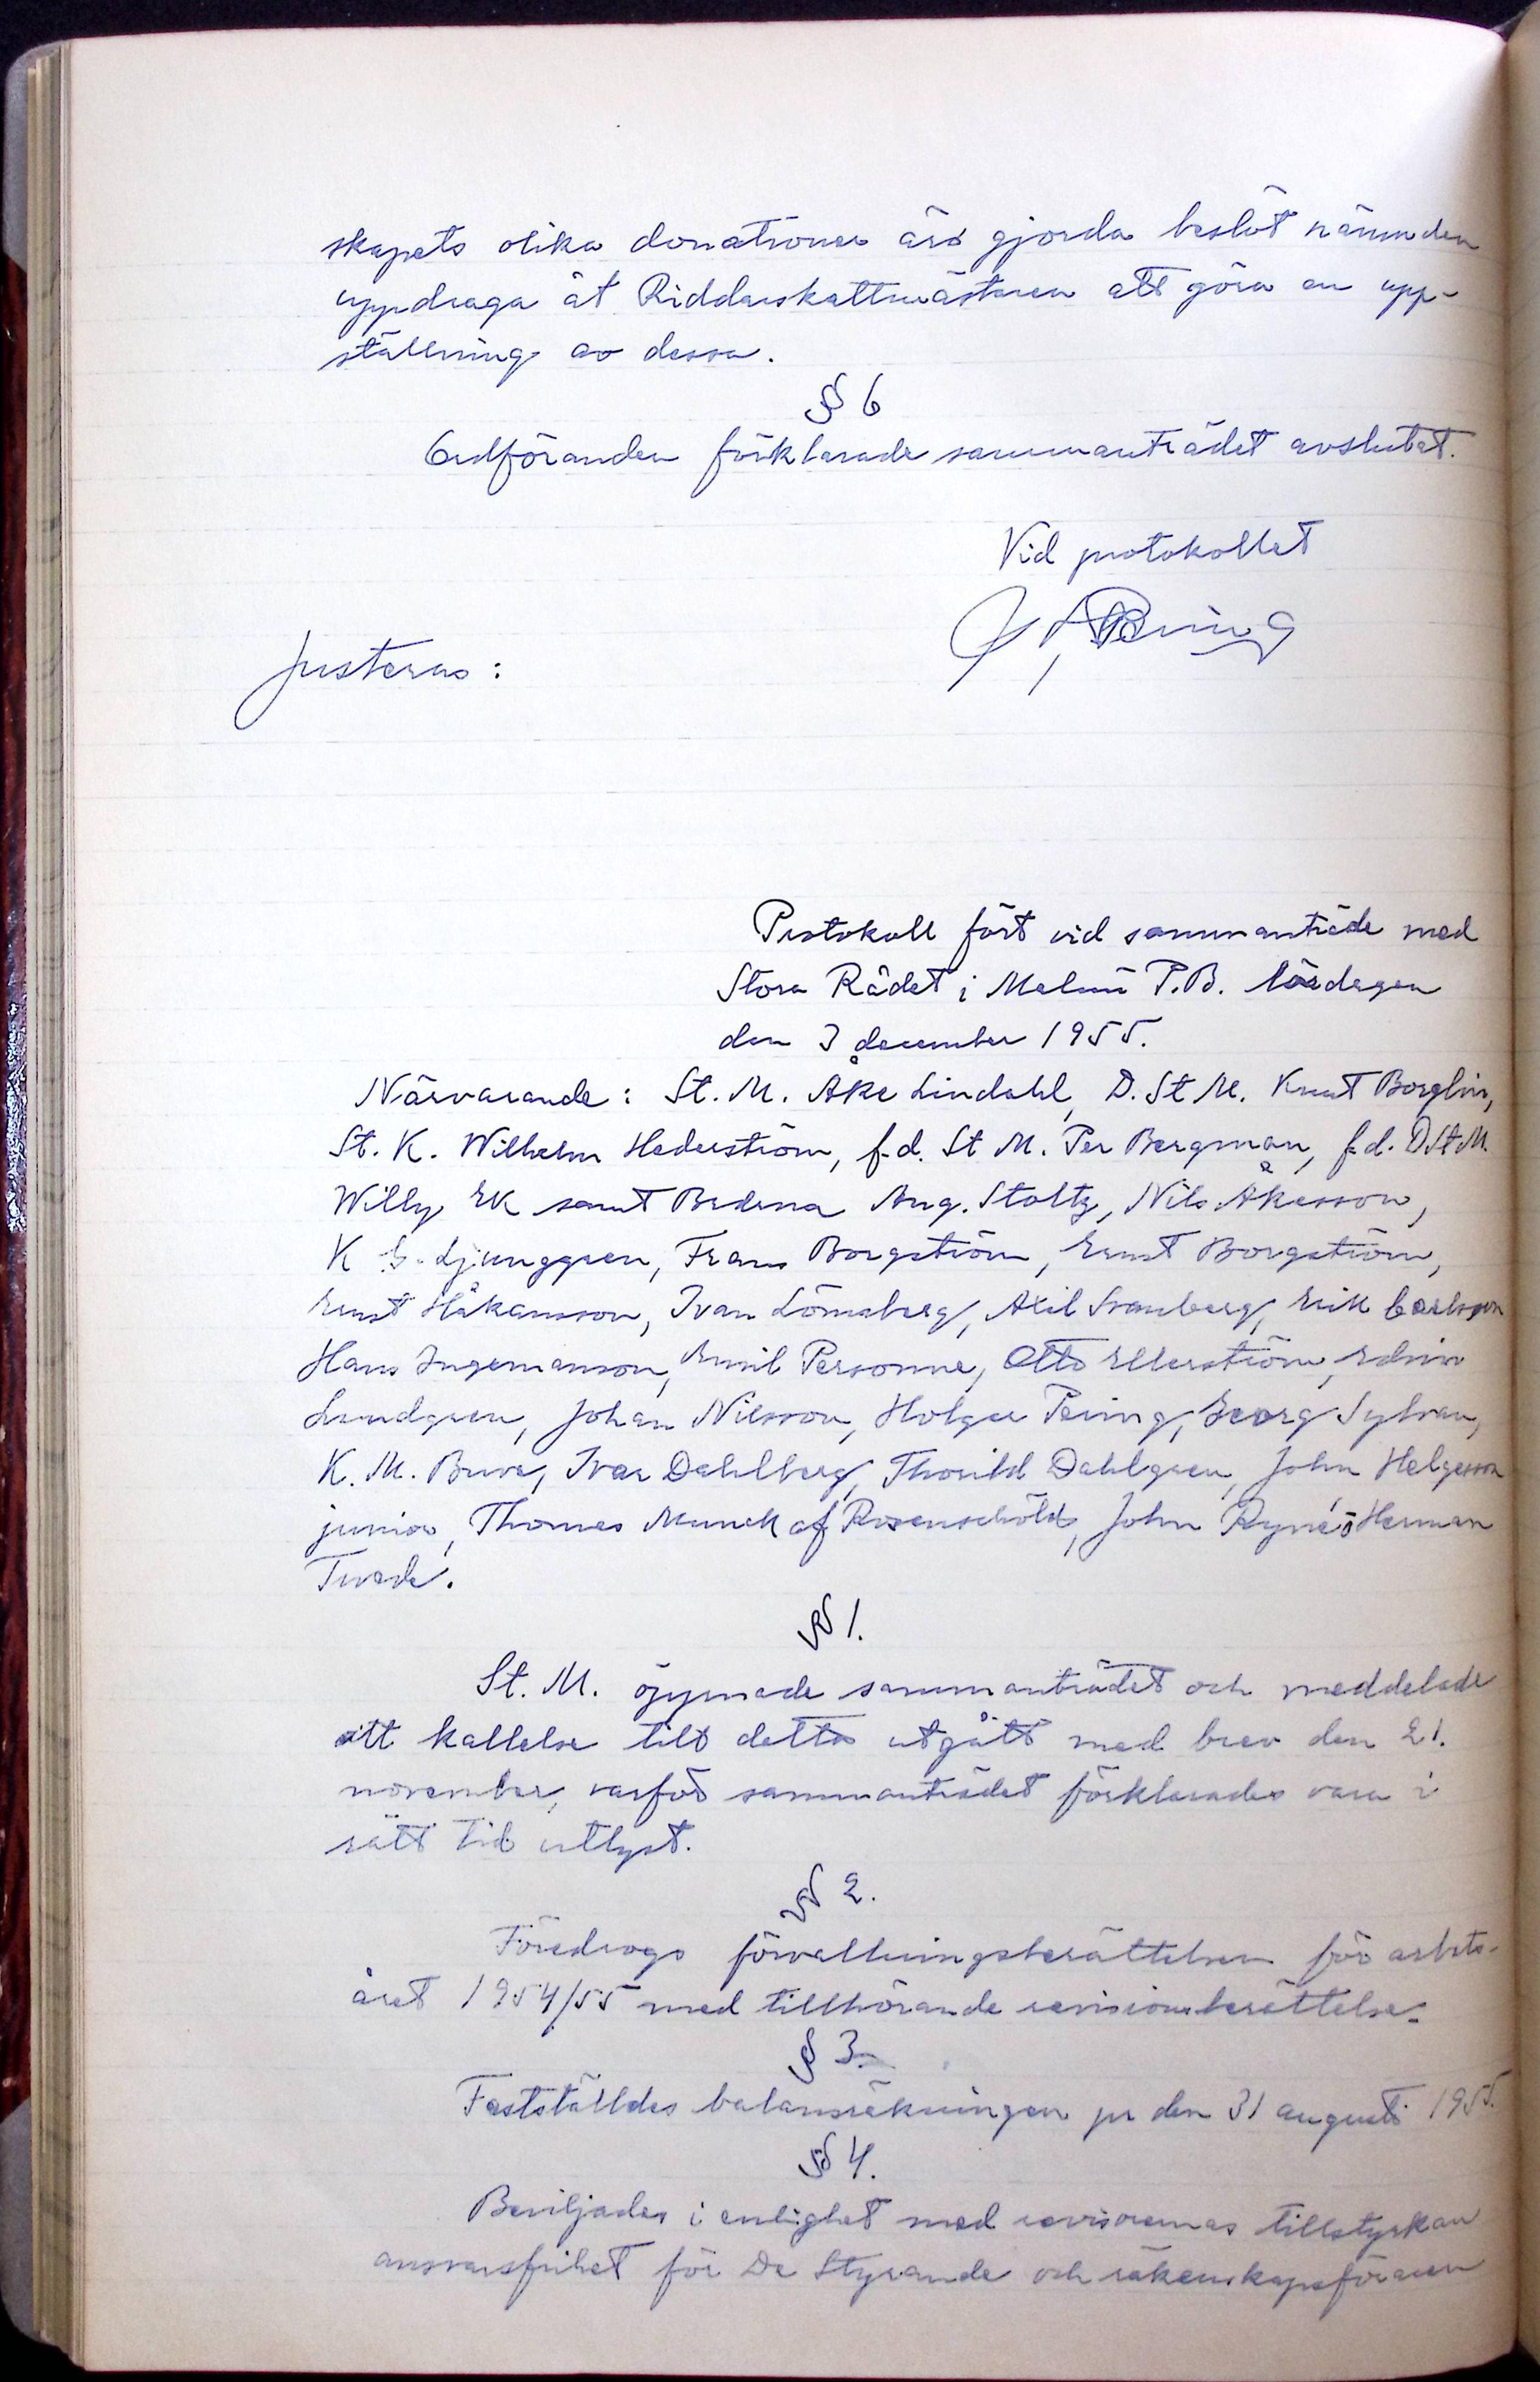 skapets olika donationer äro gjorda beslöt nämnden
uppdraga åt Riddarskattmästaren att göra en upp-
ställning av dessa.
§ 6
Ordföranden förklarade sammanträdet avslutat.
Vid protokollet
Justeras:
Protokoll fört vid sammanträde med
Stora Rådet i Malmö P.B. lördagen
den 3 december 1955.
Närvarande: St. M. Åke Lindahl, D. St M. Knut Borglin,
St. K. Wilhelm Hederström, f.d. St M. Per Bergman, f.d. D St M.
Willy Ek samt Bröderna Aug. Stoltz, Nils Åkesson,
K G. Ljunggren, Frans Borgström, Ernst Borgström,
Ernst Håkansson, Ivan Lörnsberg, Axel Svanberg, Erik Carlsson
Hans Ingemanson, Emil Personne, Otto Ellerström, Edvin
Lundgren, Johan Nilsson, Holger Pering, Georg Sylvan,
K. M. Buve, Ivar Dahlberg, Thorild Dahlgren, John Helgesson
junior, Thomas Munck af Rosenschöld, John Ryné o Herman
Tvede.
§ 1.
St. M. öppnade sammanträdet och meddelade
att kallelse till detta utgått med brev den 21.
november, varför sammanträdet förklarades vara i
rätt tid utlyst.
§ 2.
Föredrogs förvaltningsberättelsen för arbets-
året 1954/55 med tillhörande revisionsberättelse.
§ 3.
Fastställdes balansräkningen pr den 31 augusti 1955.
§ 4.
Beviljades i enlighet med revisorernas tillstyrkan
ansvarsfrihet för De Styrande och räkenskapsföraren